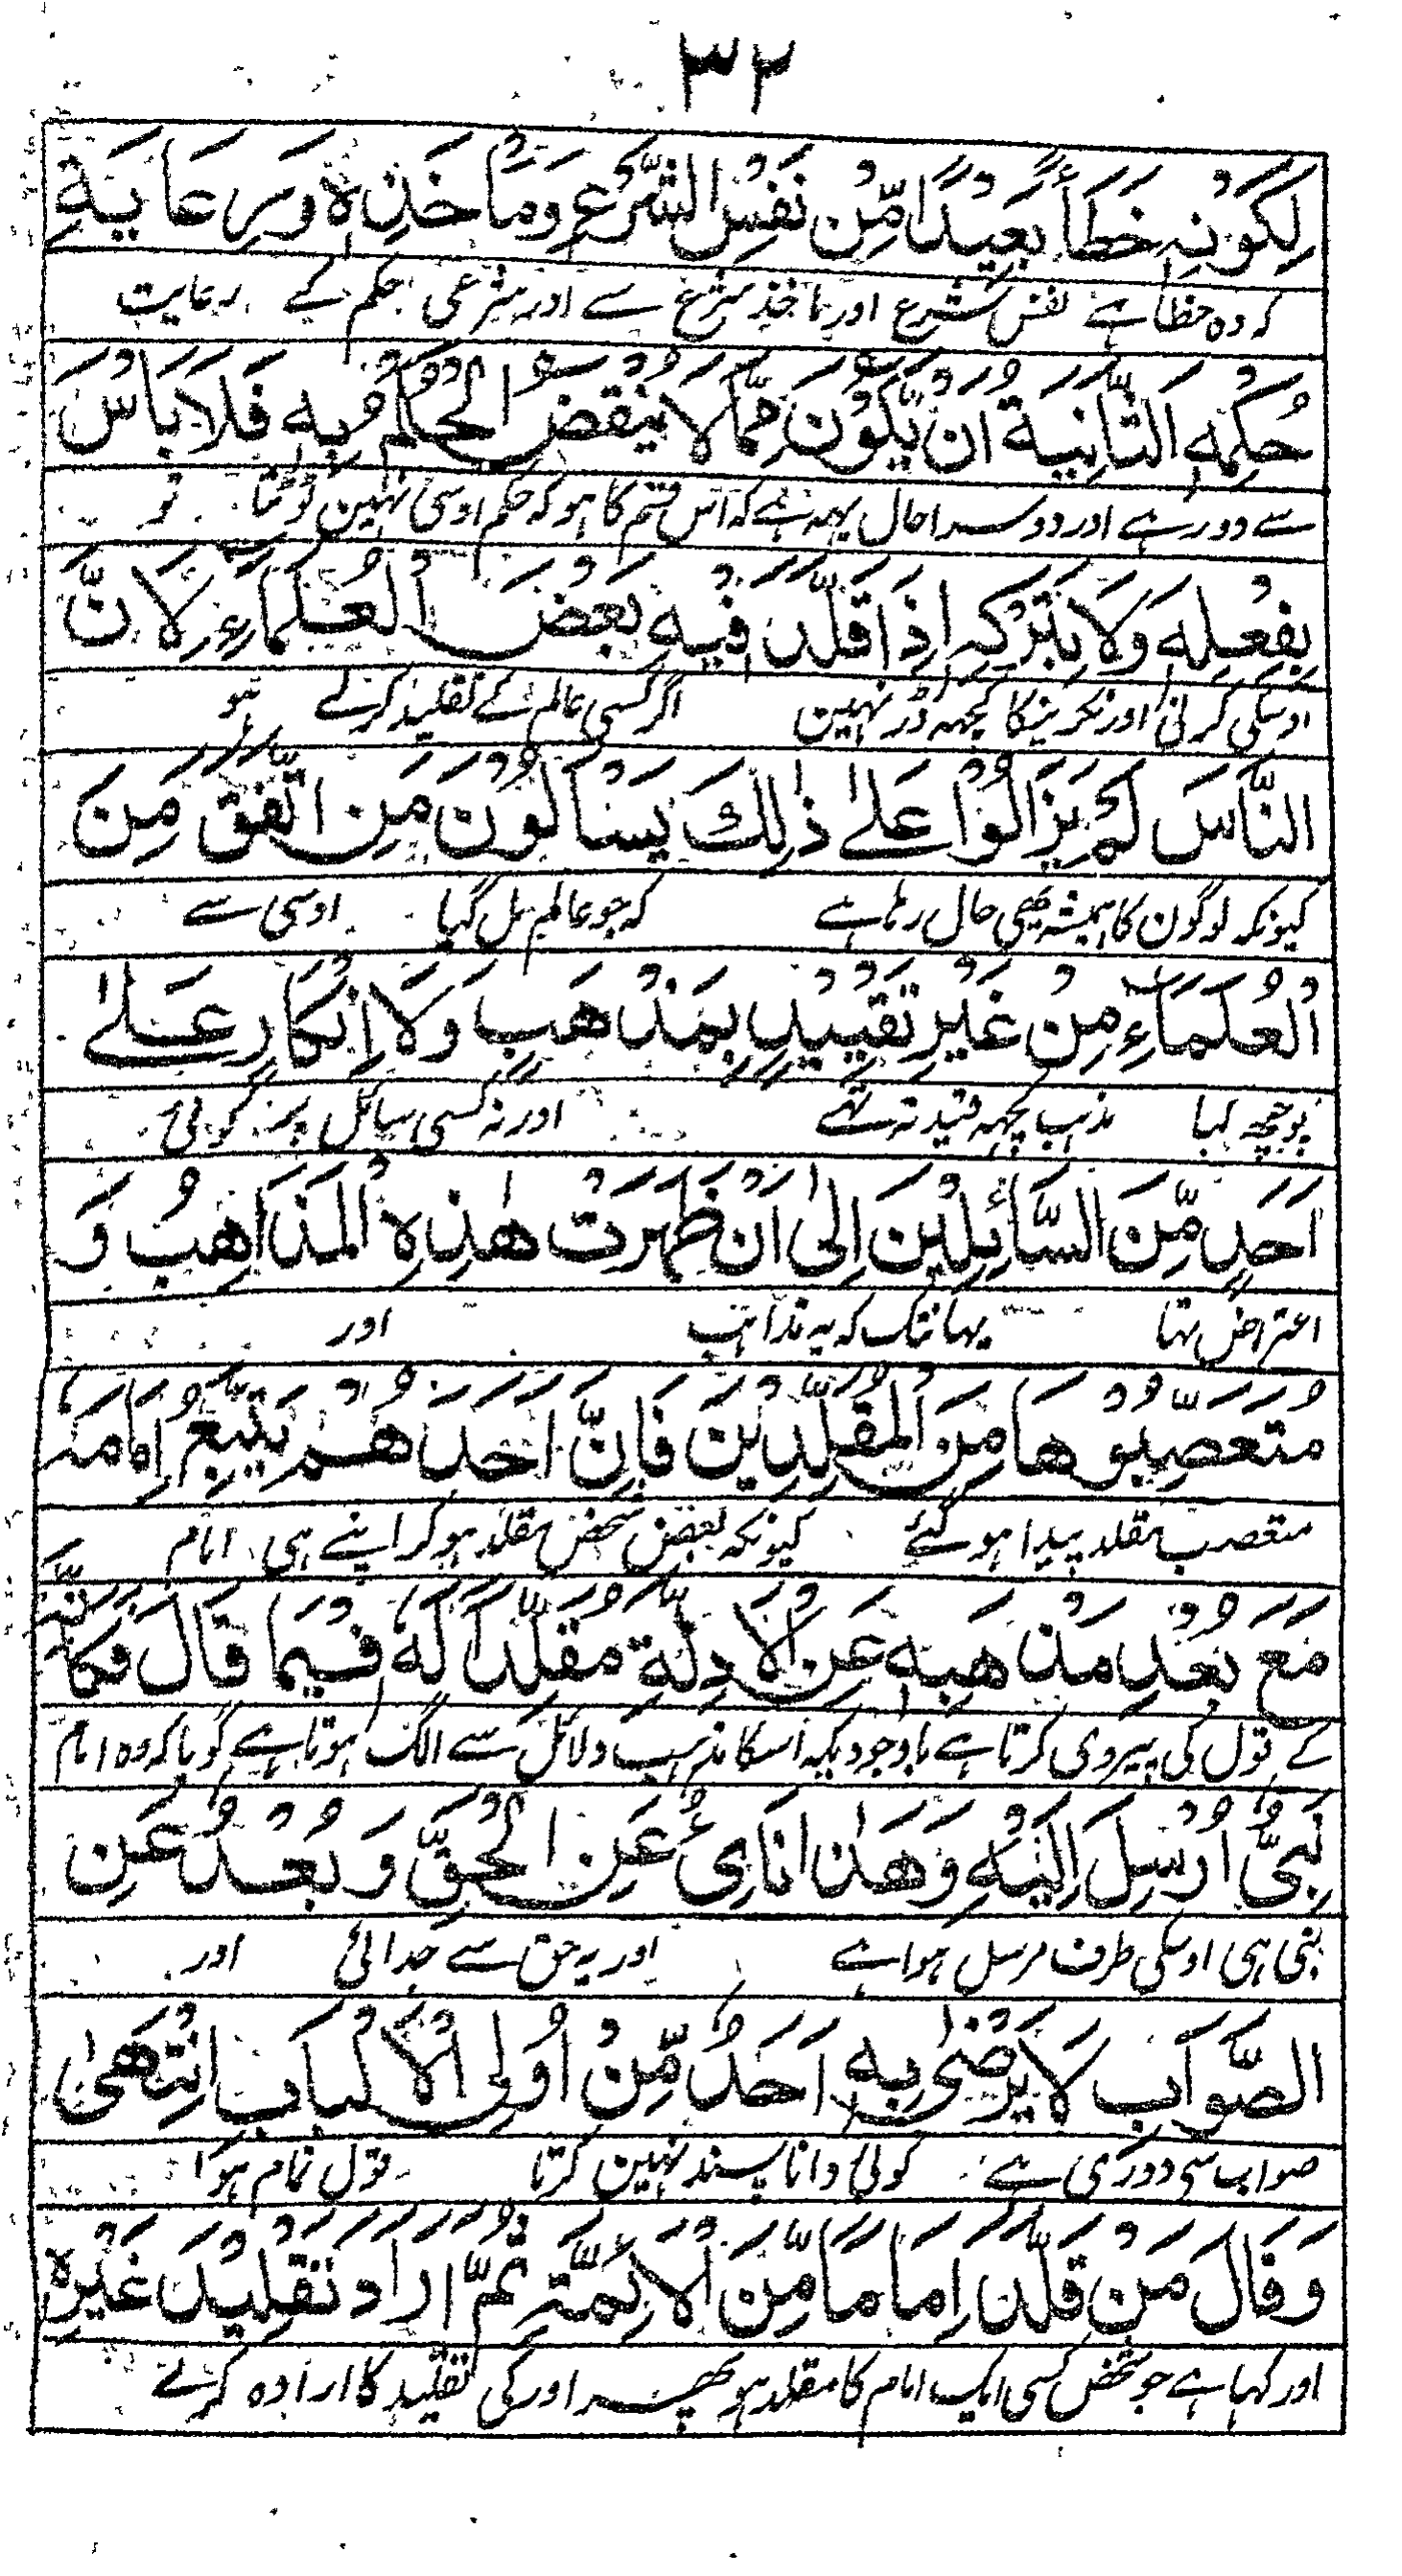 ٣٢
لِكَوْنِهٖ خَطَأً بَعِيْدًا مِّنْ نَفْسِ الشَّرْعِ وَمَأْخَذِهٖ وَرِعَايَةِ
کہ وہ خطا ہے نفس شرع اور ماخذ شرع سے اور شرعی حکم کے رعایت
حُكْمِهِ الثَّانِيَةُ اَنْ يَّكُوْنَ مِمَّا لَا يَنْقُضُ الْحُكْمُ بِهٖ فَلَا بَاْسَ
سے دور ہے اور دوسرا حال یہہ ہے کہ اس قسم کا ہو کہ حکم اوسی نہین ٹوٹتا تو
بِفِعْلِهٖ وَلَا بِتَرْكِهٖ اِذَا قَلَّدَ فِيْهِ بَعْضَ الْعُلَمَاءِ لِاَنَّ
اوسکی کرنی اور نکرنیکا کچھہ ڈر نہین اگر کسی عالم کے تقلید کرے
النَّاسَ لَمْ يَزَالُوْا عَلٰى ذٰلِكَ يَسْأَلُوْنَ مَنِ اتَّفَقَ مِنَ
کیونکہ لوگون کا ہمیشہ یہی حال رہا ہے کہ جو عالم مل گیا اوسی سے
الْعُلَمَاءِ مِنْ غَيْرِ تَقْيِيْدٍ بِمَذْهَبٍ وَلَا اِنْكَارٍ عَلٰى
پوچھہ لیا مذہب کچھہ قید نہ تھے اور نہ کسی سائل پر کوئی
اَحَدٍ مِّنَ السَّائِلِيْنَ اِلٰى اَنْ ظَهَرَتْ هٰذِهِ الْمَذَاهِبُ وَ
اعتراض تہا یہانتک کہ یہ مذاہب اور
مُتَعَصِّبُوْهَا مِنَ الْمُقَلِّدِيْنَ فَاِنَّ اَحَدَهُمْ يَتَّبِعُ اِمَامَهٗ
متعصب مقلد پیدا ہو گئے کیونکہ بعض شخص مقلد ہو کر اپنے ہی امام
مَعَ بُعْدِ مَذْهَبِهٖ عَنِ الْاَدِلَّةِ مُقَلِّدًا لَهٗ فِيْمَا قَالَ فَكَاَنَّهٗ
کے قول کی پیروی کرتا ہے باوجودیکہ اسکا مذہب دلائل سے الگ ہوتا ہے گویا کہ وہ امام
نَبِيٌّ اُرْسِلَ اِلَيْهِ وَهٰذَا نَأْىٌ عَنِ الْحَقِّ وَبُعْدٌ عَنِ
نبی ہی اوسکی طرف مرسل ہوا ہے اور یہ حق سے جدائی اور
الصَّوَابِ لَا يَرْضٰى بِهٖ اَحَدٌ مِّنْ اُولِى الْاَلْبَابِ اِنْتَهٰى
صواب سی دوری ہے کوئی دانا پسند نہین کرتا قول تمام ہوا
وَقَالَ مَنْ قَلَّدَ اِمَامًا مِّنَ الْاَئِمَّةِ ثُمَّ اَرَادَ تَقْلِيْدَ غَيْرِهٖ
اور کہا ہے جو شخص کسی ایک امام کا مقلد ہو پھر اور کی تقلید کا ارادہ کرے